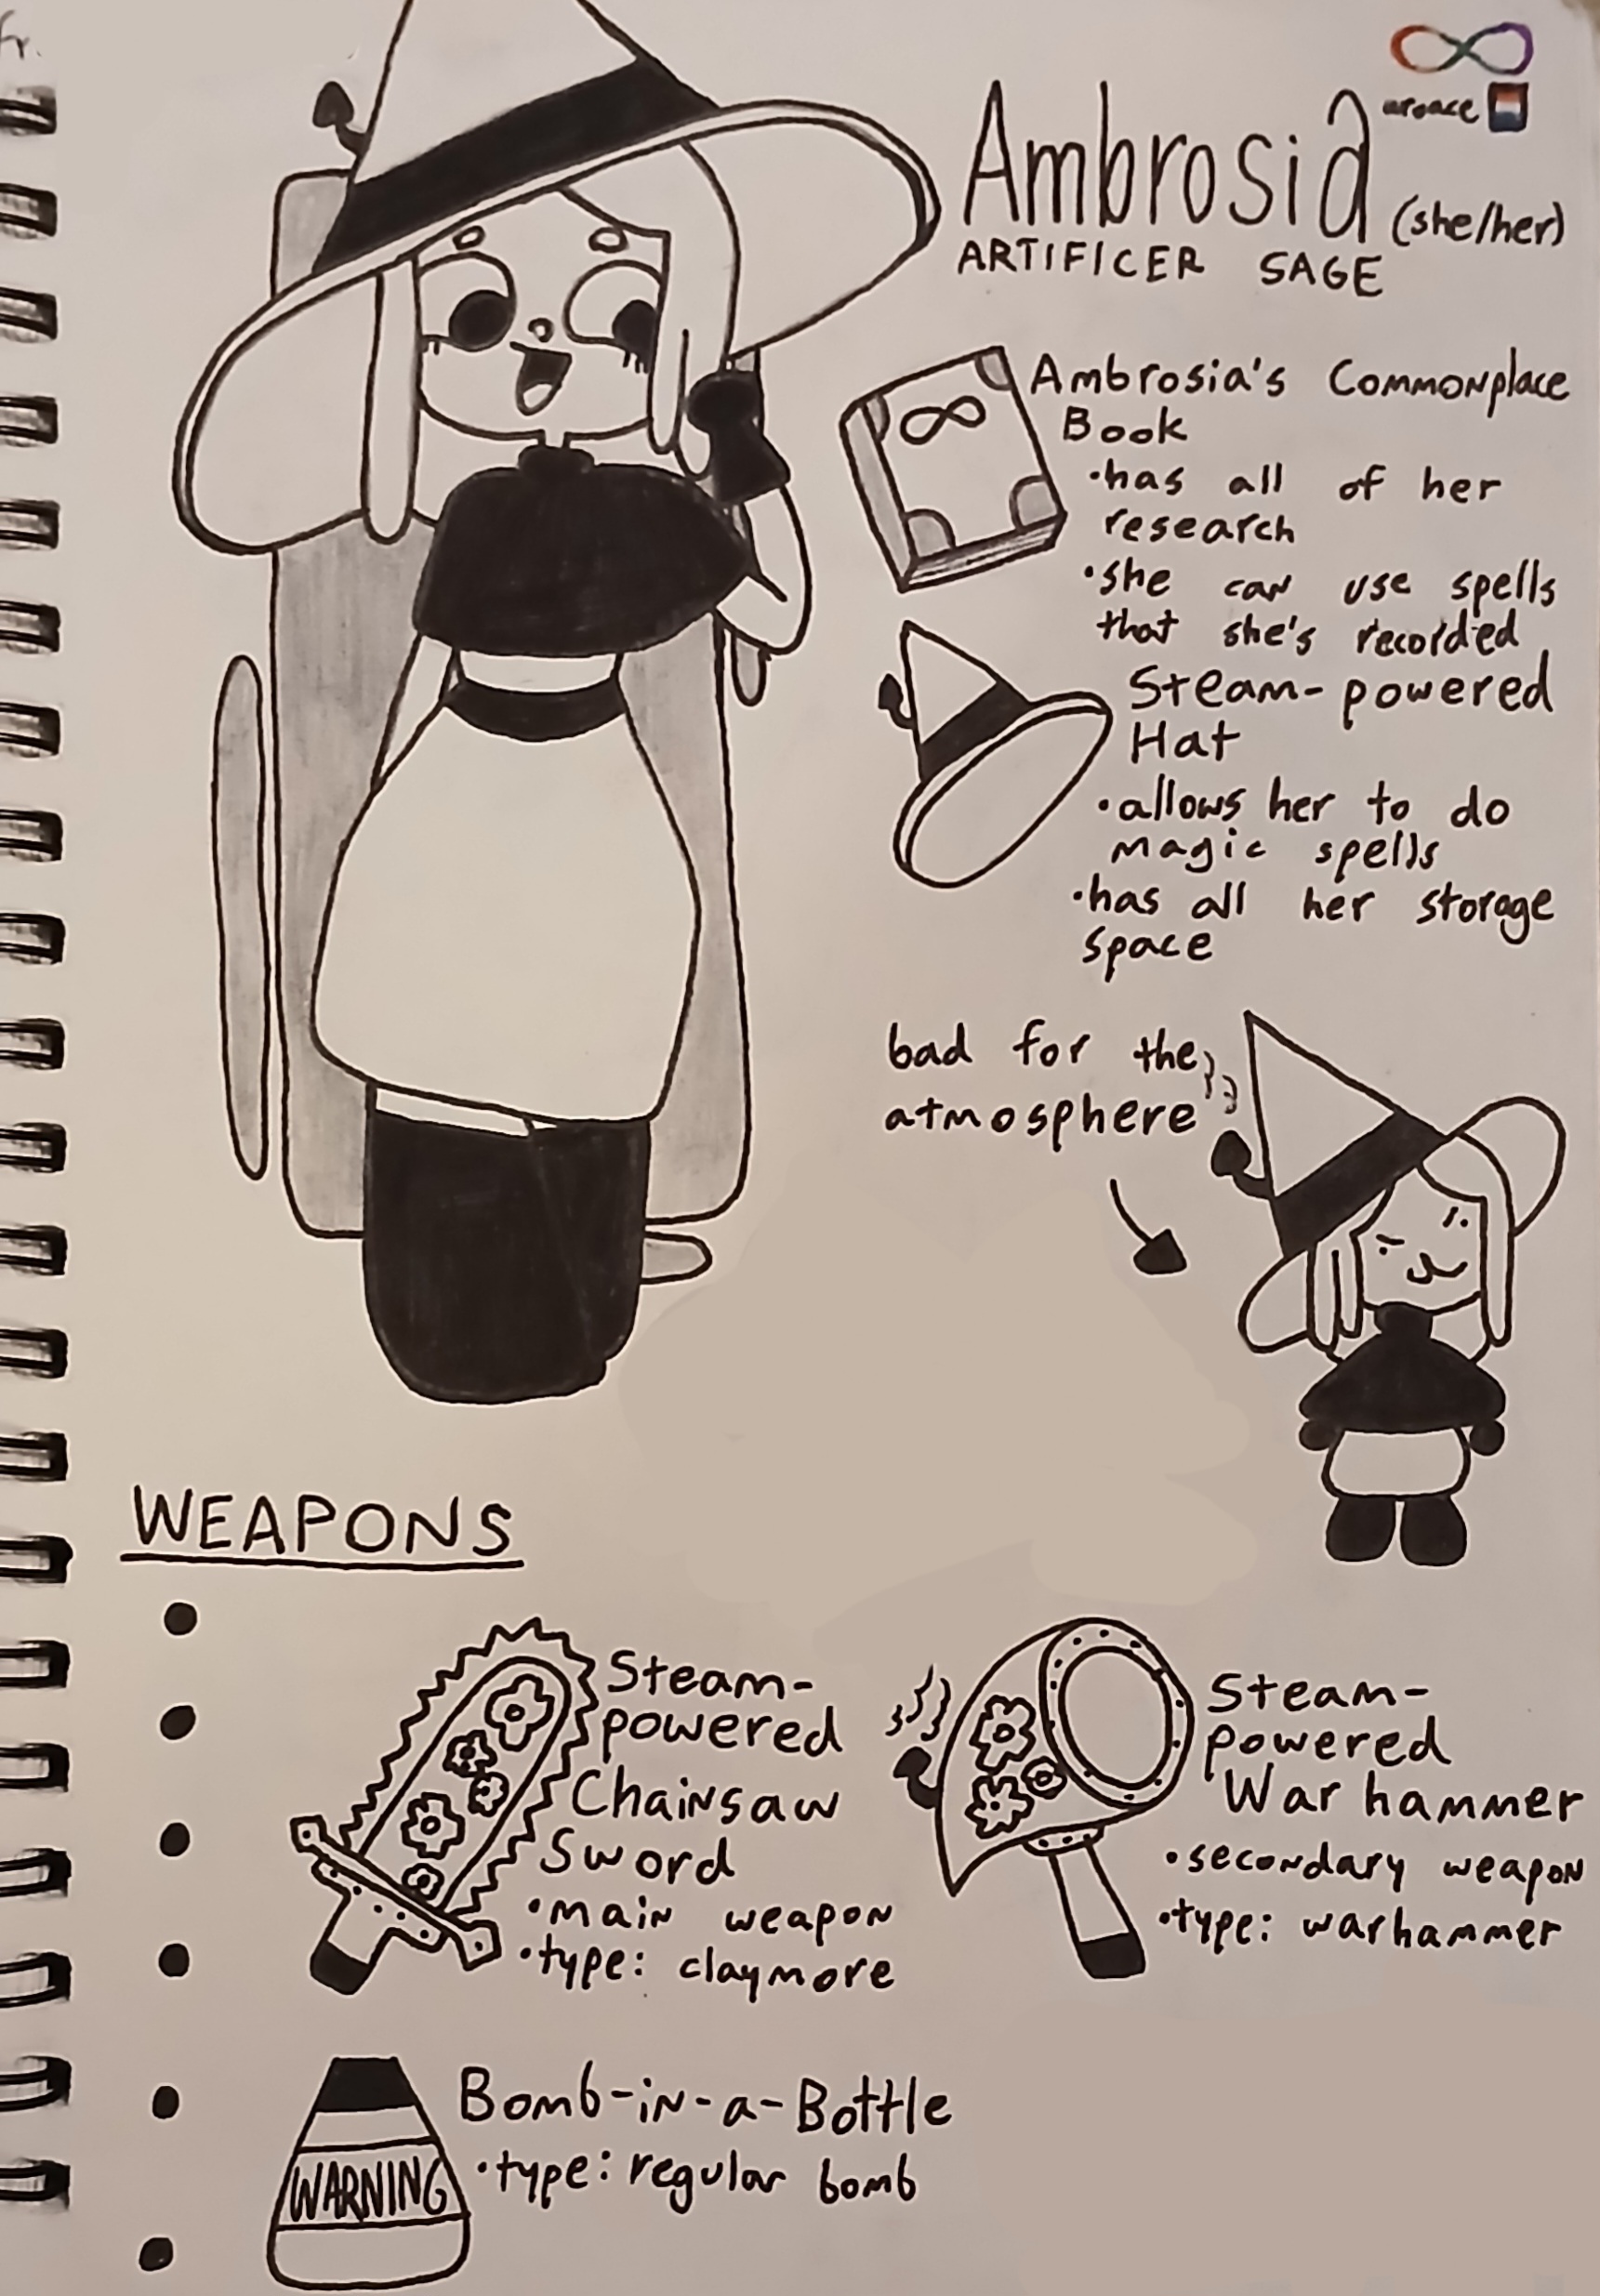 fr.
aroace
Ambrosia (she/her)
ARTIFICER SAGE
Ambrosia's Commonplace
Book
•has all of her
research
•she can use spells
that she's recorded
Steam-powered
Hat
•allows her to do
magic spells
•has all her storage
space
bad for the
atmosphere
WEAPONS
Steam-
powered
Chainsaw
Sword
•main weapon
•type: claymore
Steam-
powered
War hammer
•secondary weapon
•type: warhammer
Bomb-in-a-Bottle
•type: regular bomb
WARNING